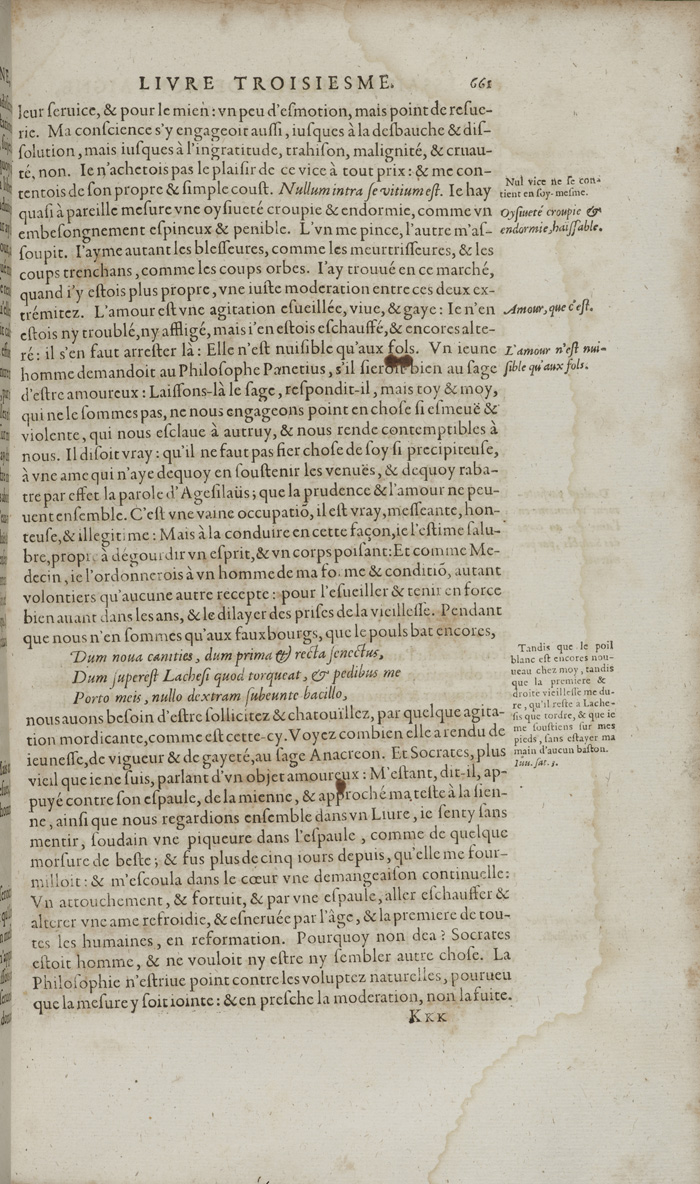 LIVRE TROISIESME. 661
leur ſeruice, & pour le mien: vn peu d'eſmotion, mais point de reſue-
rie. Ma conſcience s'y engageoit auſſi, iuſques à la deſbauche & diſ-
ſolution, mais iuſques à l'ingratitude, trahiſon, malignité, & cruau-
té, non. Ie n'achetois pas le plaiſir de ce vice à tout prix: & me con-
tentois de ſon propre & ſimple couſt. Nullum intra ſe vitium eſt. Ie hay
quaſi à pareille meſure vne oyſiueté croupie & endormie, comme vn
embeſongnement eſpineux & penible. L'vn me pince, l'autre m'aſ-
ſoupit. I'ayme autant les bleſſeures, comme les meurtriſſeures, & les
coups trenchans, comme les coups orbes. I'ay trouué en ce marché,
quand i'y eſtois plus propre, vne iuſte moderation entre ces deux ex-
trémitez. L'amour eſt vne agitation eſueillée, viue, & gaye: Ie n'en
eſtois ny troublé, ny affligé, mais i'en eſtois eſchauffé, & encores alte-
ré: il s'en faut arreſter là: Elle n'eſt nuiſible qu'aux fols. Vn ieune
homme demandoit au Philoſophe Panetius, s'il ſieroit bien au ſage
d'eſtre amoureux: Laiſſons-là le ſage, reſpondit-il, mais toy & moy,
qui ne le ſommes pas, ne nous engageons point en choſe ſi eſmeuë &
violente, qui nous eſclaue à autruy, & nous rende contemptibles à
nous. Il diſoit vray: qu'il ne faut pas fier choſe de ſoy ſi precipiteuſe,
à vne ame qui n'aye dequoy en ſouſtenir les venuës, & dequoy raba-
tre par effet la parole d'Ageſilaüs; que la prudence & l'amour ne peu-
uent enſemble. C'eſt vne vaine occupatiō, il eſt vray, meſſeante, hon-
teuſe, & illegitime: Mais à la conduire en cette façon, ie l'eſtime ſalu-
bre, propre à dégourdir vn eſprit, & vn corps poiſant: Et comme Me-
decin, ie l'ordonnerois à vn homme de ma forme & conditiō, autant
volontiers qu'aucune autre recepte: pour l'eſueiller & tenir en force
bien auant dans les ans, & le dilayer des priſes de la vieilleſſe. Pendant
que nous n'en ſommes qu'aux fauxbourgs, que le pouls bat encores,
Dum noua canities, dum prima & recta ſenectus,
Dum ſupereſt Lacheſi quod torqueat, & pedibus me
Porto meis, nullo dextram ſubeunte bacillo,
nous auons beſoin d'eſtre ſollicitez & chatoüillez, par quelque agita-
tion mordicante, comme eſt cette-cy. Voyez combien elle a rendu de
ieuneſſe, de vigueur & de gayeté, au ſage Anacreon. Et Socrates, plus
vieil que ie ne ſuis, parlant d'vn objet amoureux: M'eſtant, dit-il, ap-
puyé contre ſon eſpaule, de la mienne, & approché ma teſte à la ſien-
ne, ainſi que nous regardions enſemble dans vn Liure, ie ſenty ſans
mentir, ſoudain vne piqueure dans l'eſpaule, comme de quelque
morſure de beſte; & fus plus de cinq iours depuis, qu'elle me four-
milloit: & m'eſcoula dans le cœur vne demangeaiſon continuelle:
Vn attouchement, & fortuit, & par vne eſpaule, aller eſchauffer &
alterer vne ame refroidie, & eſneruée par l'âge, & la premiere de tou-
tes les humaines, en reformation. Pourquoy non dea? Socrates
eſtoit homme, & ne vouloit ny eſtre ny ſembler autre choſe. La
Philoſophie n'eſtriue point contre les voluptez naturelles, pourueu
que la meſure y ſoit iointe: & en preſche la moderation, non la fuite.
KKK
Nul vice ne ſe con-
tient en ſoy-meſme.
Oyſiueté croupie &
endormie, haiſſable.
Amour, que c'eſt.
L'amour n'eſt nui-
ſible qu'aux fols.
Tandis que le poil
blanc eſt encores nou-
ueau chez moy, tandis
que la premiere &
droite vieilleſſe me du-
re, qu'il reſte à Lache-
ſis que tordre, & que ie
me ſouſtiens ſur mes
pieds, ſans eſtayer ma
main d'aucun baſton.
Iuu. ſat. 3.